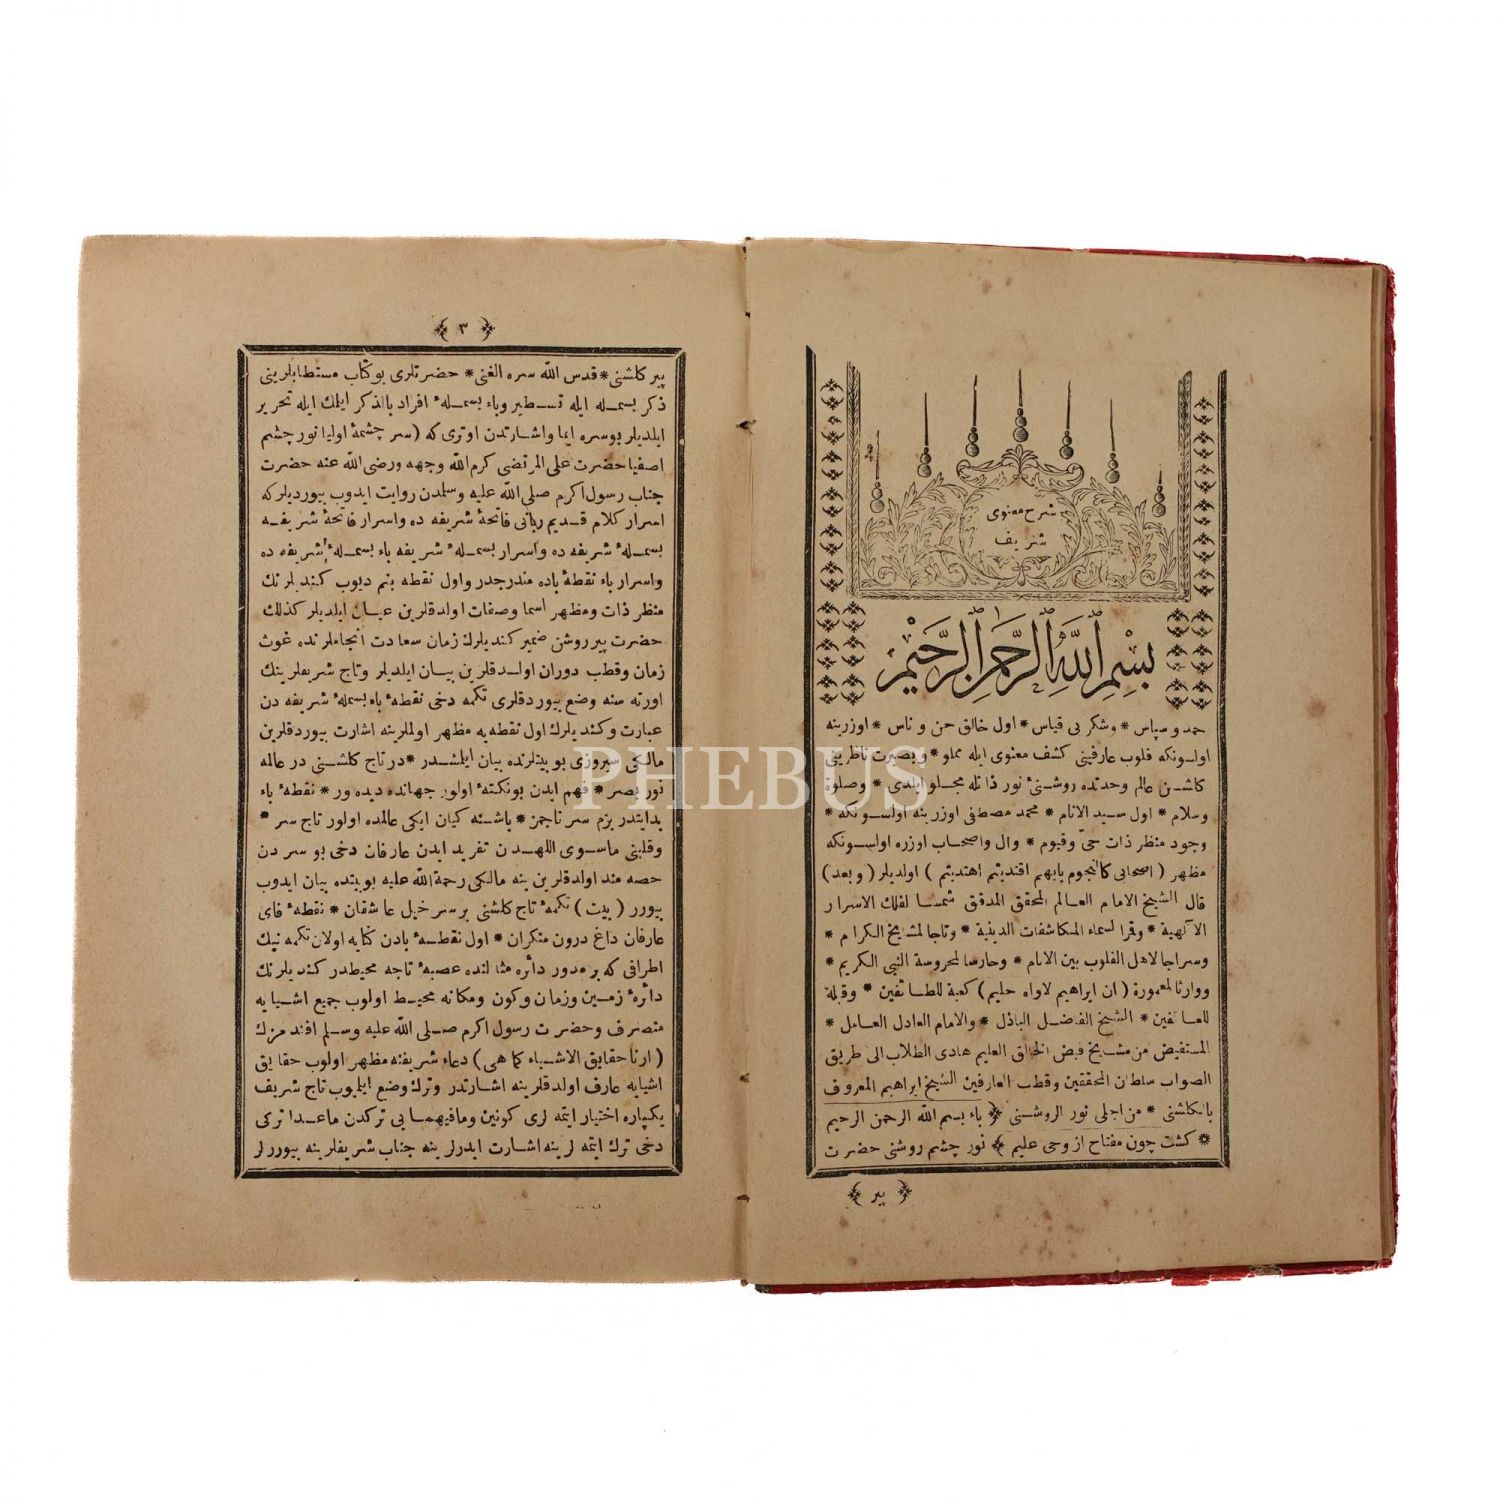 شرح معنوی
شریف
بسم الله الرحمن الرحیم
حمد و سپاس * وشکر بی قیاس * اول خالق جن و ناس * اوزرینه
اولسونکه قلوب عارفینی کشف معنوی ایله مملو * و بصیرت ناظرینی
کلشن عالم وحدتده روشنئ نور ذاتله مجلو ایلدی * وصلوة
وسلام * اول سید الانام * محمد مصطفی اوزرینه اولسونکه *
وجود منظر ذات حی وقیوم * وال واصحاب اوزره اولسونکه
مظهر ( اصحابی کالنجوم بایهم اقتدیتم اهتدیتم ) اولدیلر ( و بعد )
قال الشیخ الامام العالم المحقق المدقق شمسا لفلك الاسرار
الآلهیة * وقرا لسماء المکاشفات الدینیة * وتاجا لمشایخ الکرام *
وسراجا لاهل القلوب بین الانام * وحارسا لمحروسة النبی الکریم *
ووارثا لمعمورة ( ان ابراهیم لاواه حلیم ) کعبة للطائفین * وقبلة
للعاکفین * الشیخ الفاضل الباذل * والامام العادل العامل *
المستفیض من مشایخ فیض الخلاق العلیم هادی الطلاب الی طریق
الصواب سلطان المحققین وقطب العارفین الشیخ ابراهیم المعروف
بالکلشنی * من اجلی نور الروشنی ﴿ باء بسم الله الرحمن الرحیم
* کشت چون مفتاح از وحی علیم ﴾ نور چشم روشنی حضرت
﴿ پیر ﴾
﴿ ٣ ﴾
پیر کلشنی * قدس الله سره الغنی * حضرتلری بو کتاب مستطابلرینی
ذکر بسمله ایله تسطیر وباء بسملهٔ افراد بالذکر ایلمك ایله تحریر
ایلدیلر بوسره ایما واشارتدن اوتری که ( سر چشمهٔ اولیا نور چشم
اصفیا حضرت علی المرتضی کرم الله وجهه ورضی الله عنه حضرت
جناب رسول اکرم صلی الله علیه وسلمدن روایت ایدوب بیوردیلرکه
اسرار کلام قدیم ربانی فاتحهٔ شریفه ده واسرار فاتحهٔ شریفه
بسملهٔ شریفه ده واسرار بسملهٔ شریفه باء بسملهٔ شریفه ده
واسرار باء نقطهٔ باده مندرجدر واول نقطه بنم دیوب کندیلرنك
منظر ذات ومظهر اسما وصفات اولدقلرین عیان ایلدیلر کذلك
حضرت پیر روشن ضمیر کندیلرك زمان سعادت انجاملرنده غوث
زمان وقطب دوران اولدقلرین بیان ایلدیلر وتاج شریفلرینك
اورته سنه وضع بیوردقلری تکمه دخی نقطهٔ باء بسملهٔ شریفه دن
عبارت وکندیلرك اول نقطه یه مظهر اولملرینه اشارت بیوردقلرین
مالکی سیروزی بو بیتلرنده بیان ایلمشدر * در تاج کلشنی در عالمه
نور بصر * فهم ایدن بونکتهٔ اولور جهانده دیده ور * نقطهٔ باء
بدایتدر بزم سر تاجمز * باشنه کیان ایکی عالمده اولور تاج سر *
وقلبنی ماسوی اللهدن تفرید ایدن عارفان دخی بو سردن
حصه مند اولدقلرین ینه مالکی رحمة الله علیه بو بیتده بیان ایدوب
بیورر ( بیت ) تکمهٔ تاج کلشنی بر سر خیل عاشقان * نقطهٔ فای
عارفان داغ درون منکران * اول نقطهٔ بادن کنایه اولان تکمه نیك
اطرافی که بر مدور دائره مثالنده عصبهٔ تاجه محیطدر کندیلرنك
دائرهٔ زمین وزمان وکون ومکانه محیط اولوب جمیع اشیایه
متصرف وحضرت رسول اکرم صلی الله علیه وسلم افندمزك
( ارنا حقایق الاشیاء کما هی ) دعاء شریفنه مظهر اولوب حقایق
اشیایه عارف اولدقلرینه اشارتدر وترك وضع ایلیوب تاج شریف
یکپاره اختیار ایتمه لری کونین ومافیهمایی ترکدن ماعدا ترکی
دخی ترك ایتمه لرینه اشارت ایدرلرینه جناب شریفلرینه بیوررلر
PHEBUS